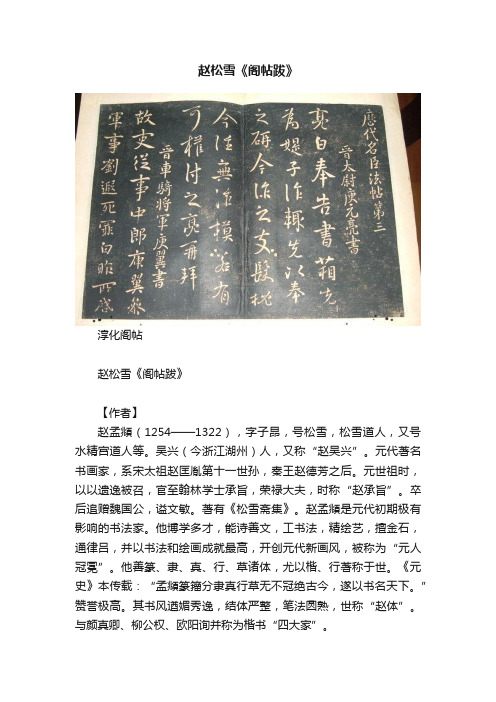 赵松雪《阁帖跋》
歷代名臣法帖第三
晉太尉庾元亮書
亮白奉告書箱先
為媞子作輒先以奉
之研今作之支髮
今往無 摸若有
可權付之亮再拜
晉車騎將軍庾翼書
故吏從事中郎庾翼參
軍事劉遐死罪白昨所啓
淳化阁帖
赵松雪《阁帖跋》
【作者】
赵孟頫（1254——1322），字子昂，号松雪，松雪道人，又号
水精宫道人等。吴兴（今浙江湖州）人，又称“赵吴兴”。元代著名
书画家，系宋太祖赵匡胤第十一世孙，秦王赵德芳之后。元世祖时，
以以遗逸被召，官至翰林学士承旨，荣禄大夫，时称“赵承旨”。卒
后追赠魏国公，谥文敏。著有《松雪斋集》。赵孟頫是元代初期极有
影响的书法家。他博学多才，能诗善文，工书法，精绘艺，擅金石，
通律吕，并以书法和绘画成就最高，开创元代新画风，被称为“元人
冠冕”。他善篆、隶、真、行、草诸体，尤以楷、行著称于世。《元
史》本传载：“孟頫篆籀分隶真行草无不冠绝古今，遂以书名天下。”
赞誉极高。其书风遒媚秀逸，结体严整，笔法圆熟，世称“赵体”。
与颜真卿、柳公权、欧阳询并称为楷书“四大家”。